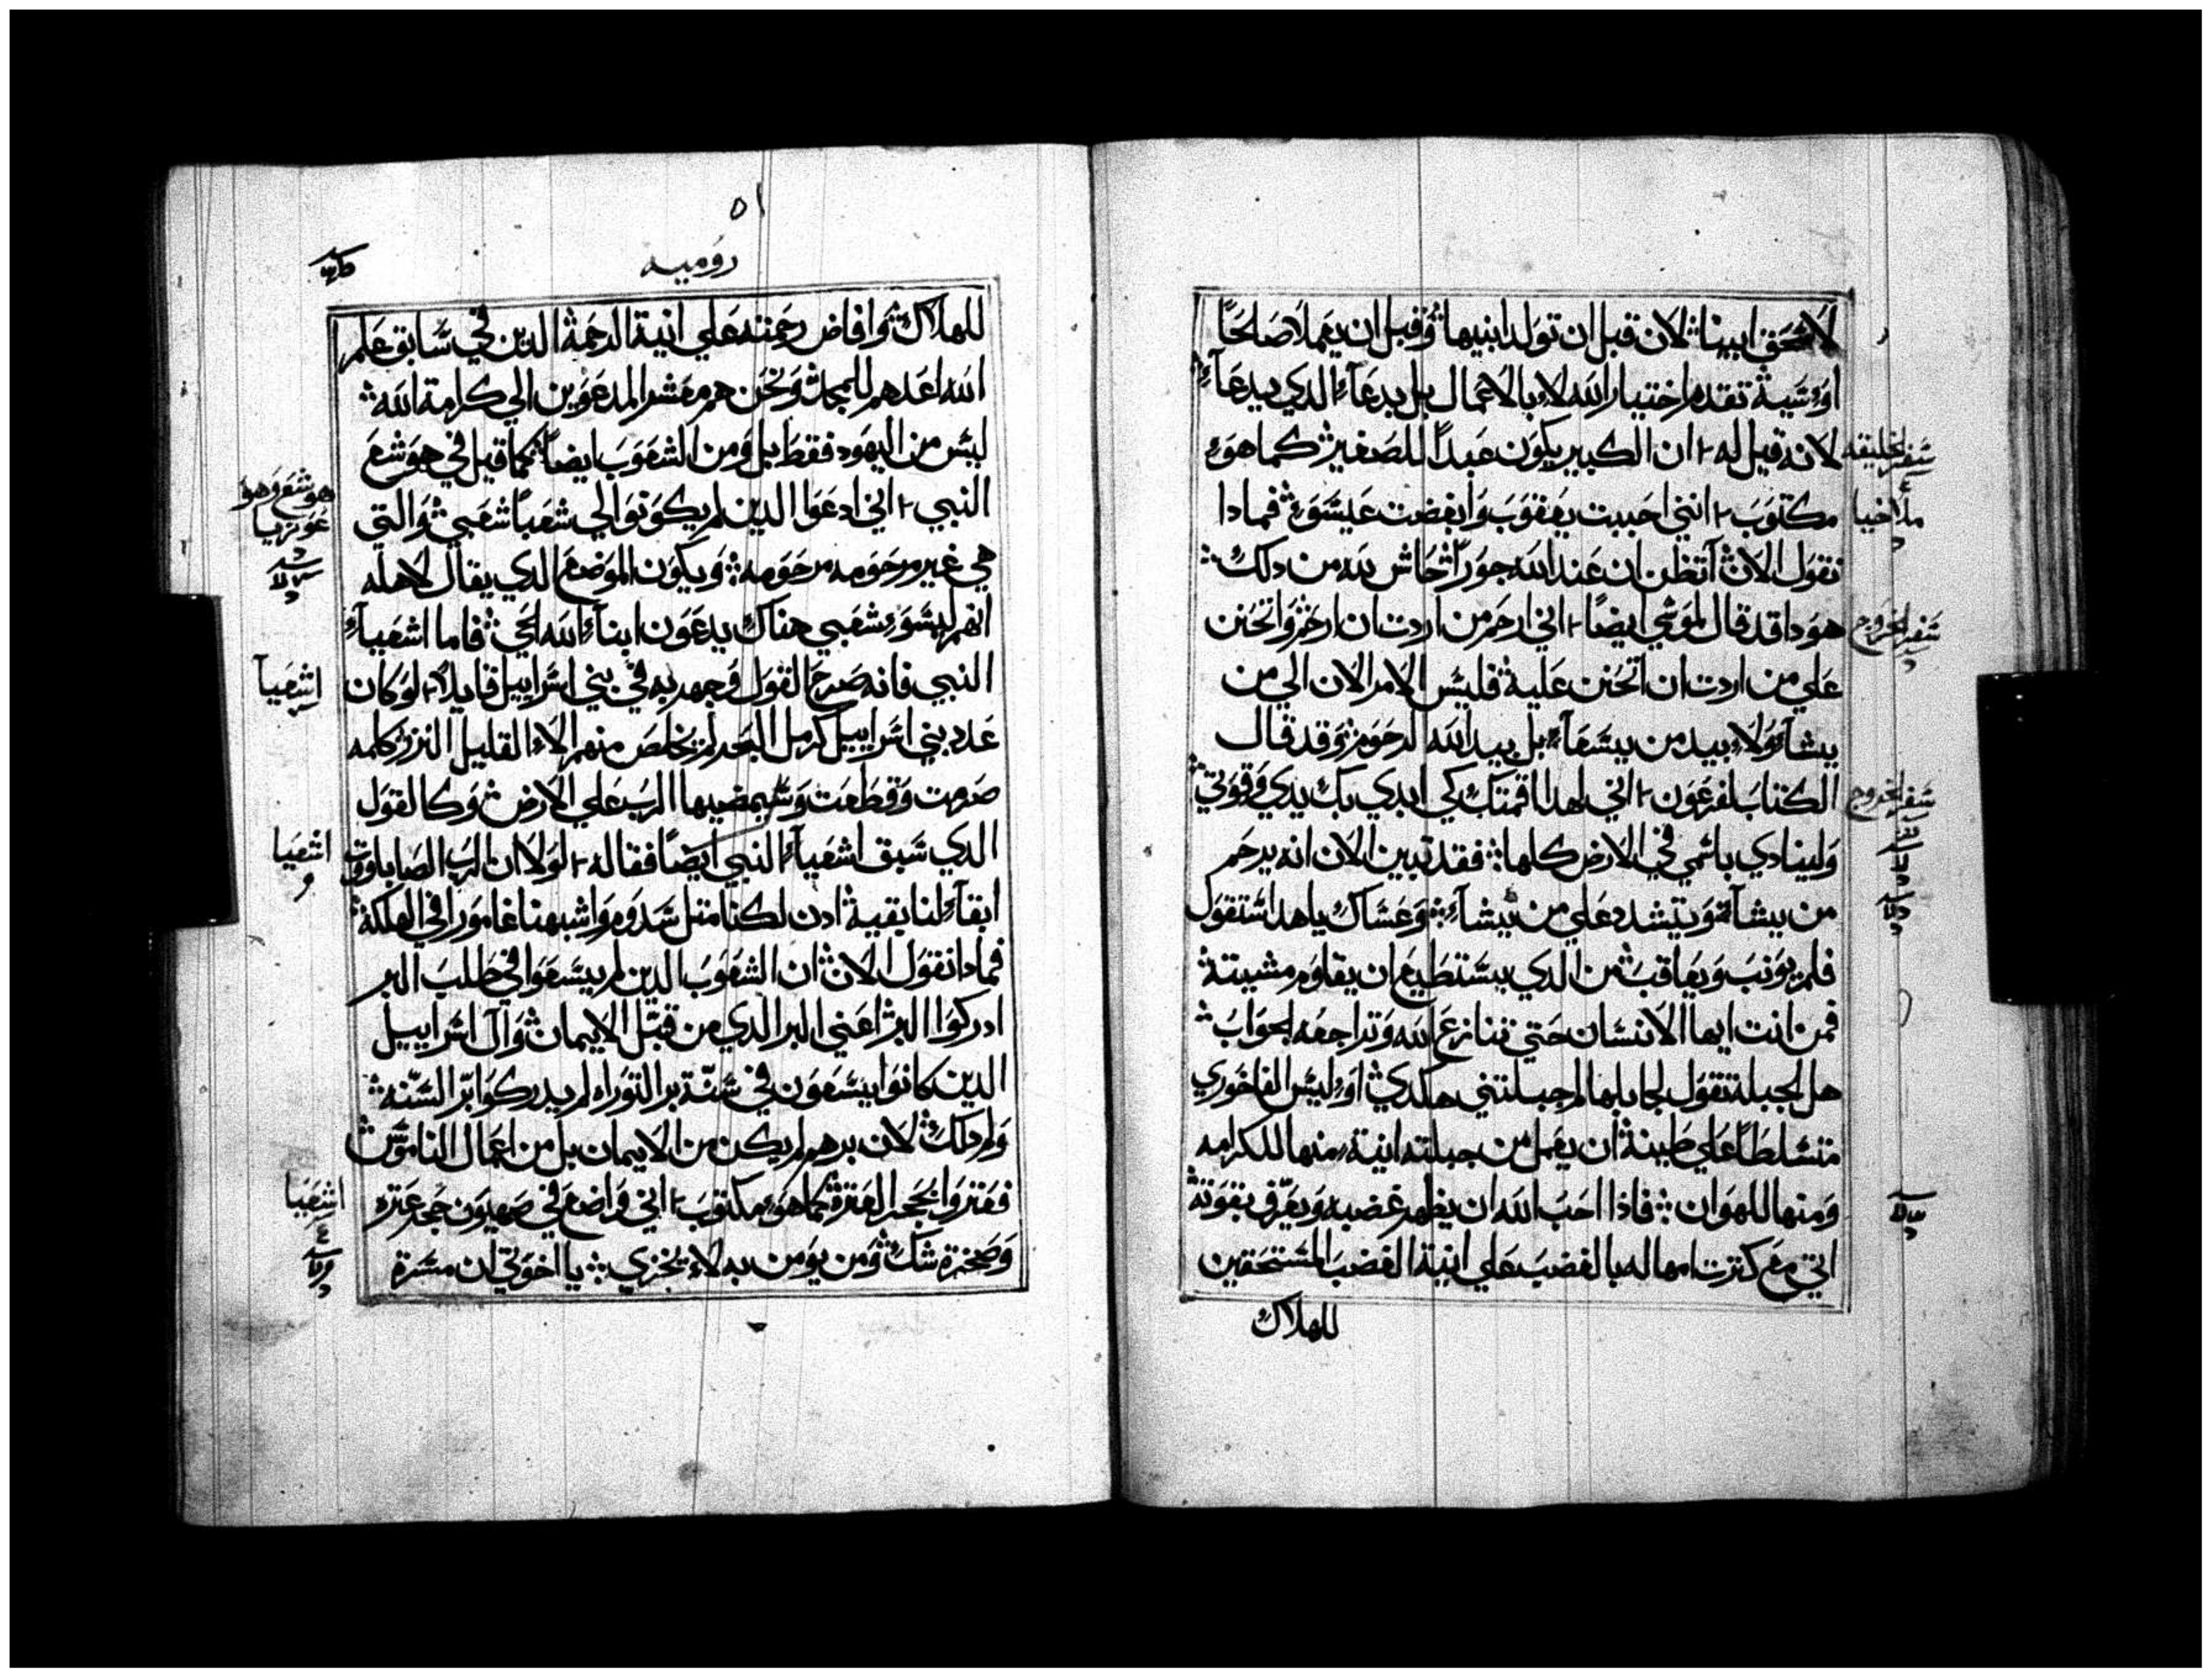 لاسحق ابينا لان قبل ان تولد ابنيها وقبل ان يعملا صالحاً
او سية تقدم اختيار الله لا بالاعمال بل بدعآء الدي يدعآ
لانه قيل له ان الكبير يكون عبداً للصغير كما هو
سفر الخليقه
مكتوب انني احببت يعقوب وابغضت عيسو فمادا
ملاخيا
نقول الان اتظن ان عند الله جوراً حاش لله من دلك
هودا قد قال لموسي ايضاً اني ارحم من اردت ان ارحم واتحنن
سفر الخروج
علي من اردت ان اتحنن علية فليس الامر الان الي من
يشآء ولا بيد من يسعآء بل بيد الله الرحوم وقد قال
الكتاب لفرعون اني لهدا اقمتك كي ابدي بك يدي وقوتي
سفر الخروج
ولينادي باسمي في الارض كلها فقد تبين الان انه يرحم
من يشآء ويتشدد علي من يشآء وعساك ياهدا ستقول
فلم يونب ويعاقب من الدي يستطيع ان يقاوم مشيتة
فمن انت ايها الانسان حتي تنازع الله وتراجعه الجواب
هل الجبلة تقول لجابلها لم جبلتني هكدي او ليس الفاخوري
متسلطاً علي طينة ان يعمل من جبلته انية منها للكرامه
ومنها للهوان فاذا احب الله ان يظهر غضبه ويعرف بقوته
اتي مع كترت امهاله بالغضب علي انية الغضب المستحقين
للهلاك
٥١
روميه
للهلاك وافاض رحمته علي انية الرحمة الدين في سابق علم
الله اعدهم للمجد ونحن هم معشر المدعوين الي كرامة الله
ليس من اليهود فقط بل ومن الشعوب ايضاً كما قيل في هوشع
النبي اني ادعوا الدين لم يكونوا لي شعباً شعبي والتي
هوشع وهو
عوزيا
هي غير مرحومه مرحومه ويكون الموضع الدي يقال لاهله
انهم ليسو شعبي هناك يدعون ابنآء الله الحي فاما اشعيآء
النبي فانه صرح القول وجهر به في بني اسراييل قايلاً لو كان
اشعيآ
عدد بني اسراييل كرمل البحر لم يخلص منهم الا القليل النزر كلمه
صرمت وقطعت وسيمضيها الرب علي الارض وكالقول
الدي سبق اشعيآء النبي ايضاً فقاله لولا ان الرب الصاباووت
اشعيا
ابقآء لنا بقية ادن لكنا متل سدوم واشبهنا غامورا في الهلكة
فمادا نقول الان ان الشعوب الدين لم يسعوا في طلب البر
ادركوا البر اعني البر الدي من قبل الايمان وآل اسراييل
الدين كانوا يسعون في سنة بر التوراه لم يدركوا بر السنه
ولم دلك لان برهم لم يكن من الايمان بل من اعمال الناموس
فعتروا بحجر العترة كما هو مكتوب اني واضع في صهيون حجر عتره
اشعيا
وصخرة شك ومن يومن به لا يخزي يا اخوتي ان مسرة